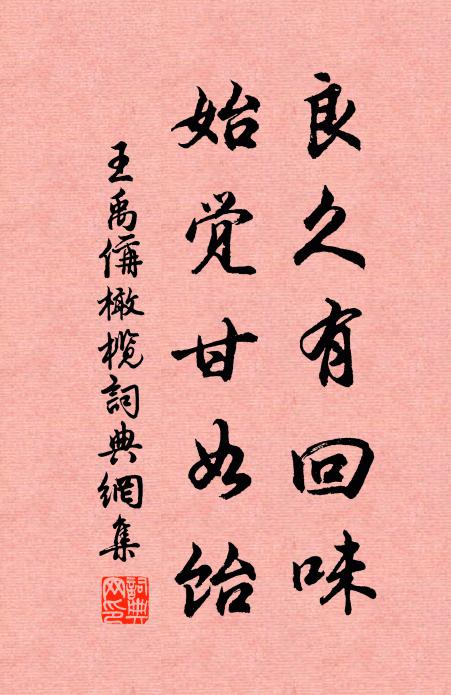 良久有回味
始觉甘如饴
王禹偁橄榄詞典網集
詞典网印